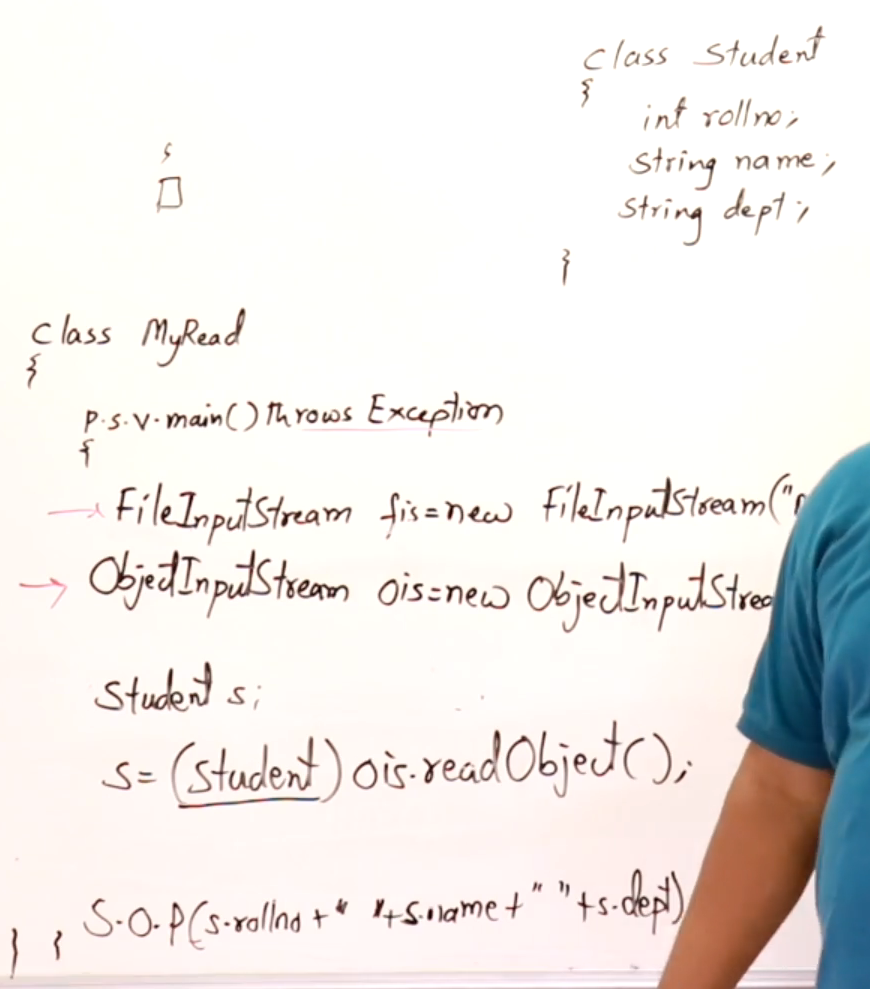 class Student
{
int rollno;
String name;
String dept;
}
s
class MyRead
{
p.s.v.main() throws Exception
{
FileInputStream fis=new FileInputStream("
ObjectInputStream ois=new ObjectInputStrea
Student s;
s= (student) ois.readObject();
S.O.P(s.rollno+" "+s.name+" "+s.dept)
} }